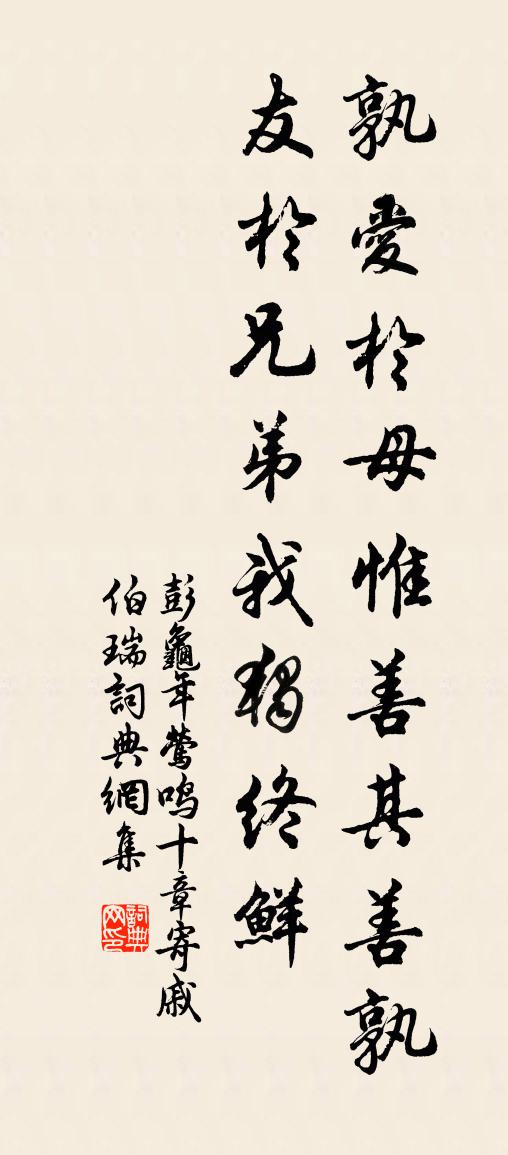 孰愛於母惟善其善孰
友於兄弟我獨終鮮
彭龜年鶯鳴十章寄戚
伯瑞詞典網集
詞典网印